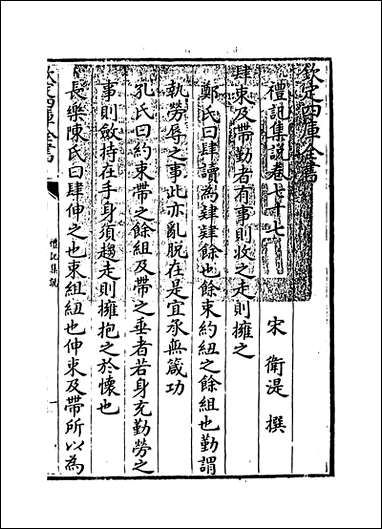 欽定四庫全書
禮記集說卷七十七
宋 衛湜 撰
肆束及帶勤者有事則收之走則擁之
鄭氏曰肆讀為肄肄餘也餘束約紐之餘組也勤謂
執勞辱之事此亦亂脫在是宜承無箴功
孔氏曰約束帶之餘組及帶之垂者若身充勤勞之
事則斂持在手身須趨走則擁抱之於懷也
長樂陳氏曰肆伸之也束組紐也伸束及帶所以為
欽定四庫全書
禮記集說
一